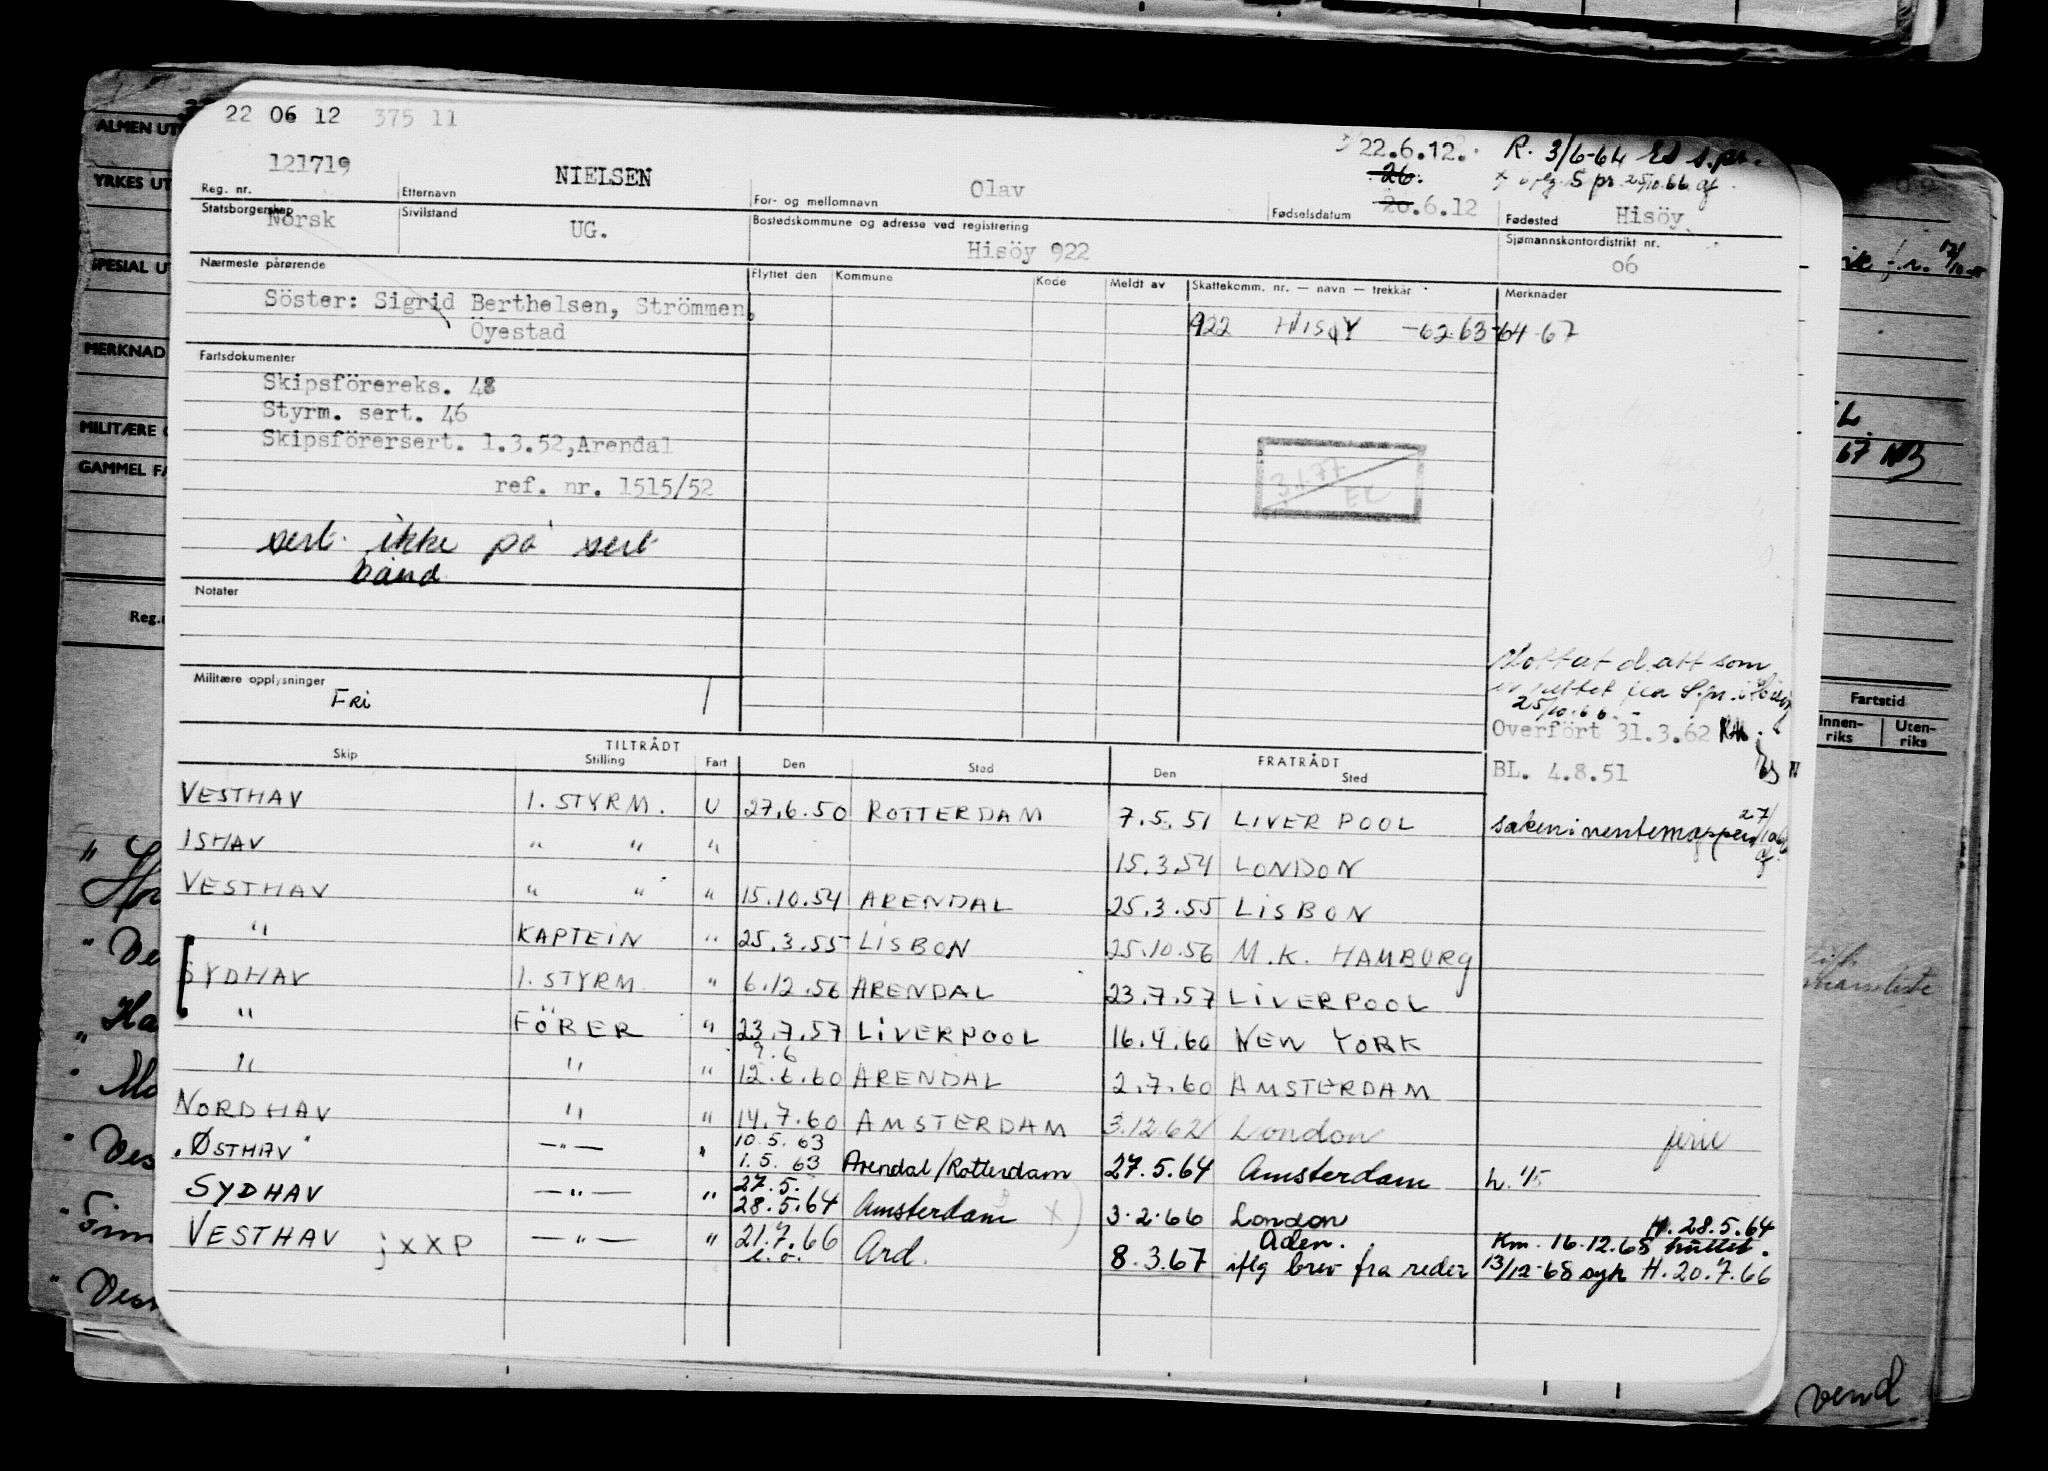 22 06 12 375 11
121719
NIELSEN
Olav
22.6.12.
26.
20.6.12
R. 3/6-64 s.pr.
S pr 25/10.66
Reg. nr. Etternavn For- og mellomnavn Fødselsdatum Fødested Hisöy
Statsborgerskap Norsk Sivilstand UG. Bostedskommune og adresse ved registrering Hisöy 922 Sjømannskontordistrikt nr. 06
Nærmeste pårørende Flyttet den Kommune Kode Meldt av Skattekomm. nr. — navn — trekkår Merknader
Söster: Sigrid Berthelsen, Strömmen,
Öyestad
922 HISØY -62-63-64-67
Fartsdokumenter
Skipsförereks. 48
Styrm. sert. 46
Skipsförersert. 1.3.52,Arendal
ref. nr. 1515/52
3.1.77
EL
sert. ikke på sert
bånd
Notater
Militære opplysninger
FRI
Mottat d.att som
er rettet fra S.pr.
25/10.66.
Overfört 31.3.62
BL. 4.8.51
TILTRÅDT FRATRÅDT
Skip Stilling Fart Den Sted Den Sted
VESTHAV 1. STYRM. U 27.6.50 ROTTERDAM 7.5.51 LIVERPOOL
ISHAV " " " 15.3.54 LONDON
VESTHAV " " " 15.10.54 ARENDAL 25.3.55 LISBON
" KAPTEIN " 25.3.55 LISBON 25.10.56 M.K. HAMBURG
SYDHAV 1. STYRM " 6.12.56 ARENDAL 23.7.57 LIVERPOOL
" FÖRER " 23.7.57 LIVERPOOL 16.4.60 NEW YORK
9.6
" " " 12.6.60 ARENDAL 2.7.60 AMSTERDAM
NORDHAV " " 14.7.60 AMSTERDAM 3.12.62 London ferie
10.5.63
"ØSTHAV" —"— " 1.5.63 Arendal/Rotterdam 27.5.64 Amsterdam h. 1/5
27.5.
SYDHAV —"— " 28.5.64 Amsterdam X) 3.2.66 London H. 28.5.64
VESTHAV jxxP —"— " 21.7.66 Ard. Aden. Km. 16.12.65
8.3.67 iflg brev fra reder 13/12-65 syk H. 20.7.66
ALMEN UT
YRKES UT
SPESIAL UT
MERKNAD
MILITÆRE
GAMMEL FA
Reg.
Fartstid
Innen-riks Uten-riks
67
vend